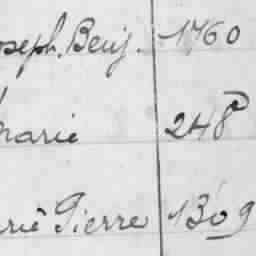 oseph. Benj. 1760
marie 248
rie Pierre 1309